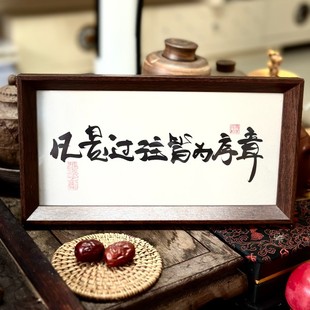 凡是过往皆为序章